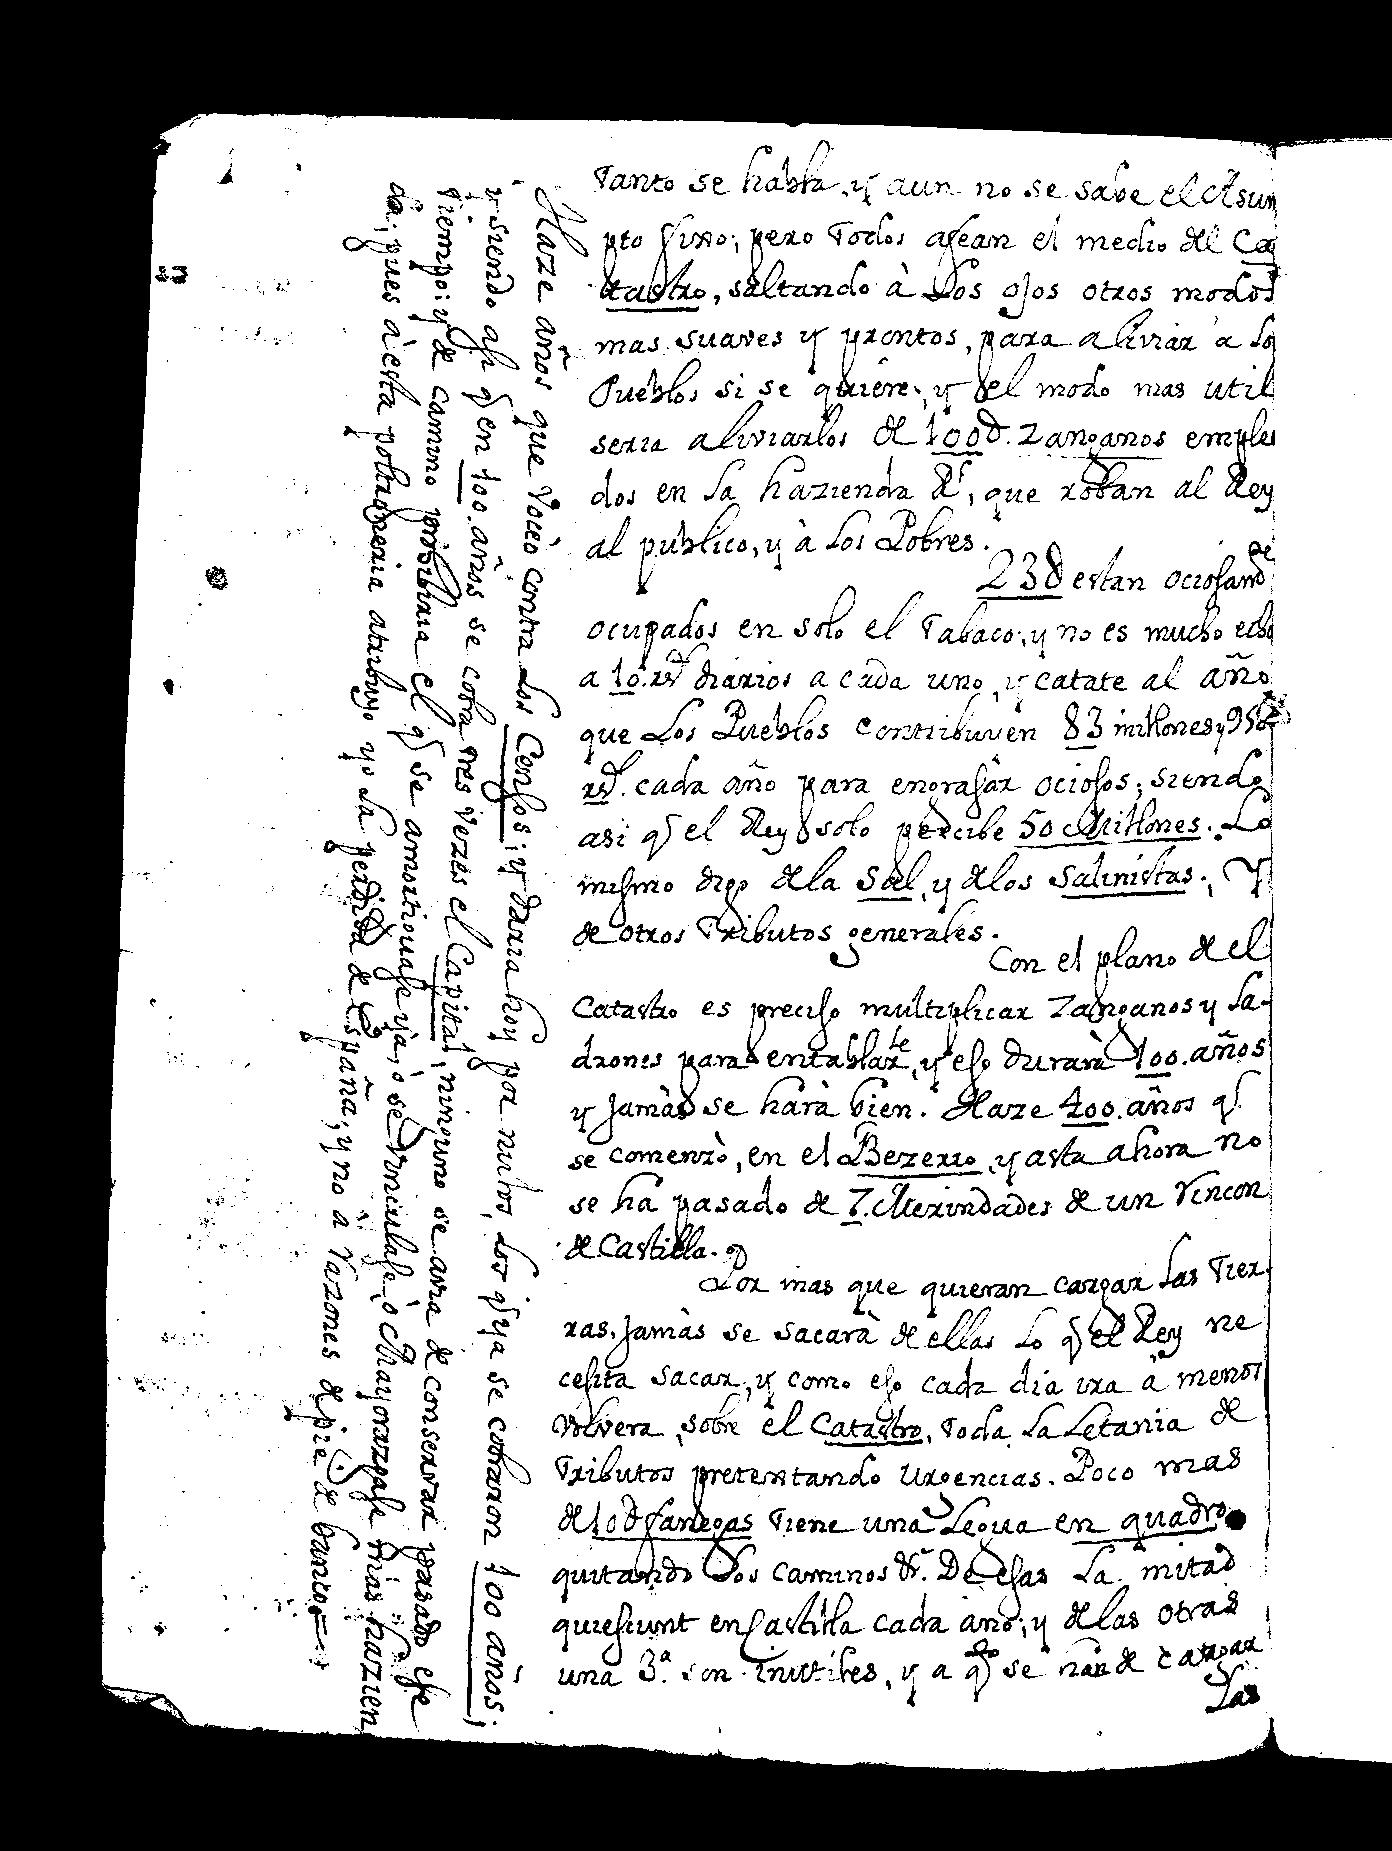 Tanto se habla, y aun no se sabe el Asun
pto fixo; pero Todos afean el medio del Ca
tastro, saltando à Los ojos otros modos
mas suaves y prontos, para aliviar a Lo
Pueblos si se quiere, y el modo mas util
seria aliviarlos de 100d. Zanganos emplea
dos en la hazienda Rl, que roban al Rey
al publico, y à Los Pobres.
23d estan ociosamte
ocupados en solo el Tabaco, y no es mucho echa
a 10. rs diarios a cada uno, y catate al año
que Los Pueblos contribuyen 83 millones y 950
rs. cada año para engrasar ociosos; siendo
asi q el Rey solo percibe 50 Millones. Lo
mismo digo de la Sal, y de los Salinistas. Y
de otros Tributos generales.
Con el plano de el
Catastro es preciso multiplicar Zanganos y La-
drones para entablarle, y eso durarà 100. años
y Jamàs se harà bien. Haze 400. años q
se comenzò, en el Bezerro, y asta ahora no
se ha pasado de 7. Merindades de un Rincon
de Castilla.
Por mas que quieran cargar Las Tier-
ras, Jamàs se sacarà de ellas Lo q el Rey ne
cesita sacar, y como eso cada dia ira a menos
volvera sobre el Catastro, Toda La Letania de
Tributos pretextando urgencias. Poco mas
de 10d fanegas Tiene una Legua en quadro,
quitando Los caminos &c. De esas La mitad
quiescunt en Castilla cada año; y de las otras
una 3.a son inutiles, y a q se han de cargar
Las
Haze años que Voceò contra Los Censos; y darra hoy por nulos, Los q ya se cobraron 100 años;
y siendo asi q en 100. años se cobra tres vezes el Capital, ninguno se arra de conservar pasado ese
Tiempo: y de camino prohibiria el q se amortiguase ya, ò se Vinculase, ò Mayorazgase mas hazien
da; pues à esta poltroneria atribuyo yo La perdida de España; y no à Razones de pie de banco.=